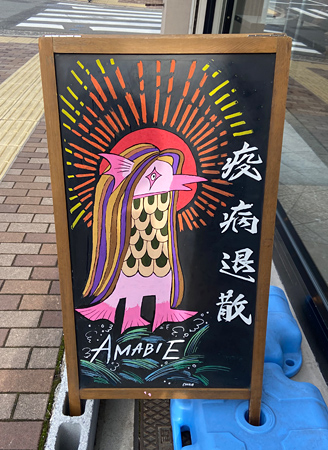 疫病退散
AMABIE